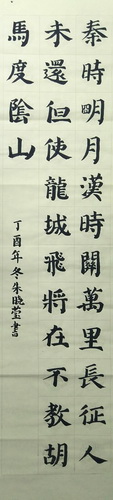 秦時明月漢時關萬里長征人
未還但使龍城飛將在不教胡
馬度陰山
丁酉年冬朱曉瑩書